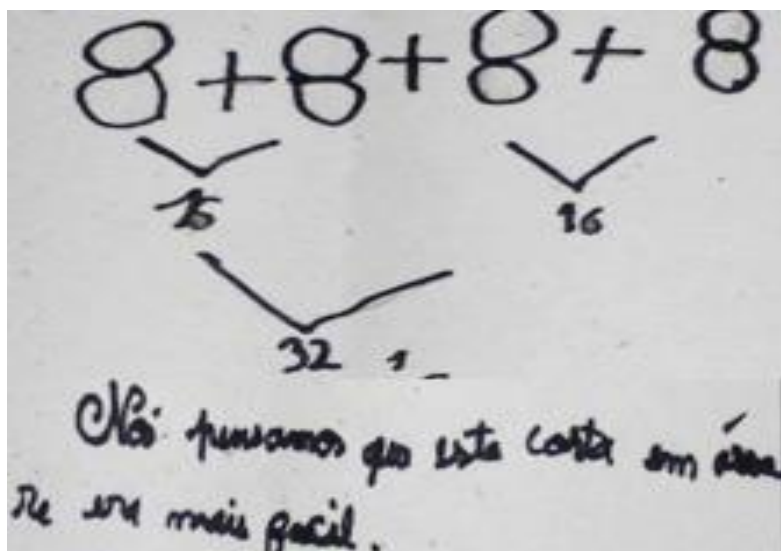 8 + 8 + 8 + 8
16 16
32
Nós pensamos que esta conta em árvo
re era mais facil.